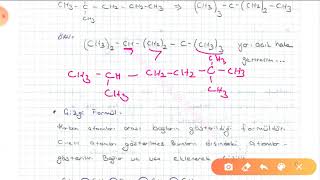 CH₃ - C - CH₂ - CH₂ - CH₃ ⇒ (CH₃)₃ - C - (CH₂)₂ - CH₃
CH₃
(CH₃)₂ - CH - (CH₂)₂ - C - (CH₃)₃ yarı açık hale
CH₃
CH₃ - CH - CH₂ - CH₂ - C - CH₃
CH₃ CH₃
• Çizgi Formül:
atomları arası bağların gösterildiği formüldür.
atomları gösterilmez bunların dışındaki atomlar
gösterilir. Bağlar ve